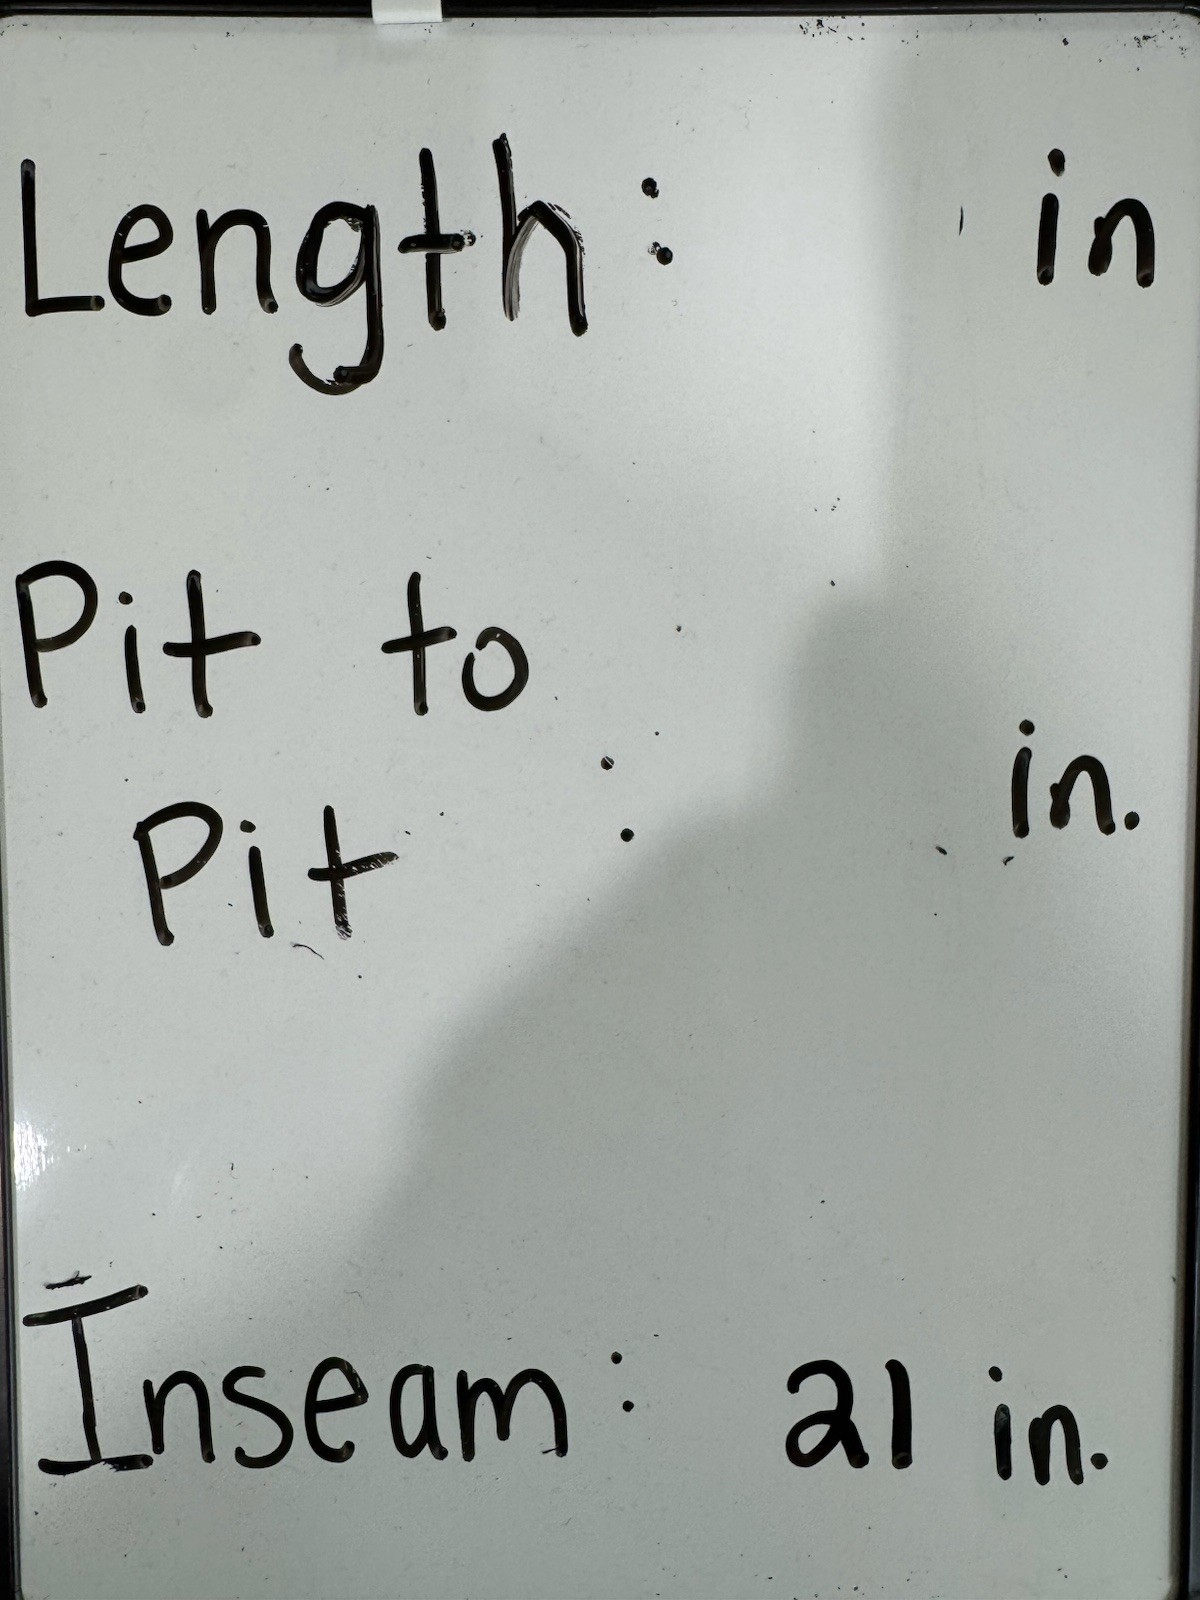 Length: in
Pit to
Pit : in.
Inseam: 21 in.